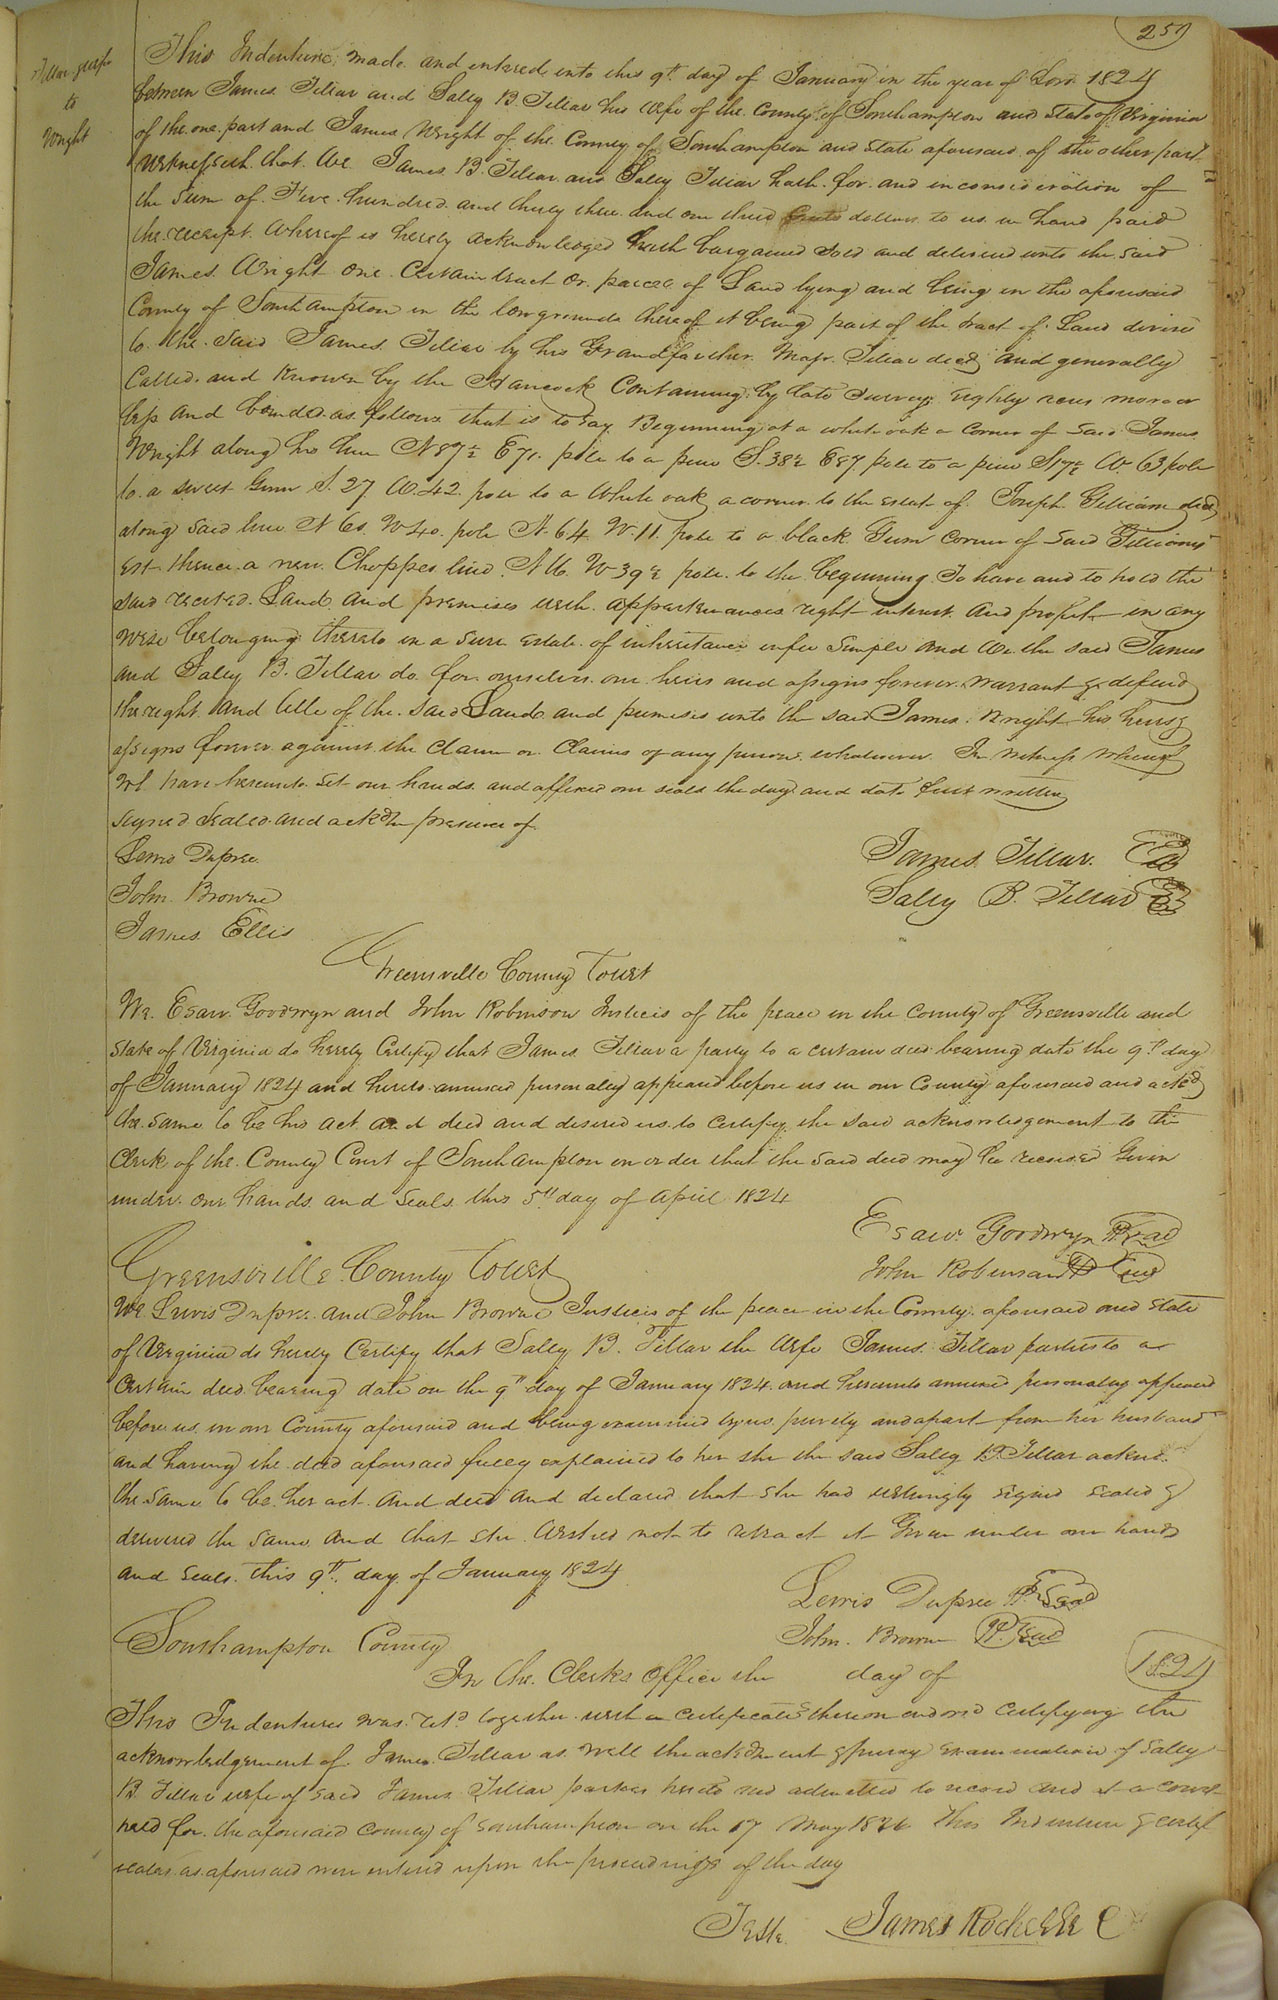 257
Tillar & wife
to
Wright
This Indenture made and entered into this 9th day of January in the year of Lord 1824
between James Tillar and Sally B. Tillar his wife of the County of Southampton and State of Virginia
of the one part and James Wright of the County of Southampton and State aforesaid of the other part
Witnesseth that We James B. Tillar and Sally Tillar hath for and in consideration of
the Sum of Five hundred and thirty three and one third dollars to us in hand paid
the receipt Whereof is hereby acknowledged hath bargained sold and delivered unto the said
James Wright one Certain tract or parcel of Land lying and being in the aforesaid
County of Southampton in the low grounds thereof it being part of the tract of Land devised
to the said James Tillar by his Grandfather Majr. Tillar decd and generally
Called and Known by the Hancock Containing by late survey eighty acres more or
less and bounded as follows that is to say Beginning at a white oak a corner of said James
Wright along his line N 87½ E 71 pole to a pine S. 38½ E 87 pole to a pine S 17½ W 63 pole
to a sweet Gum S. 27 W. 42 pole to a White oak a corner to the estate of Joseph Gilliam decd
along said line N 60 W 40 pole N. 64 W. 11 pole to a black Gum corner of said Gilliams
Est thence a new Chopped line N 16 W 39½ pole to the beginning To have and to hold the
said recited Land and premises with appurtenances right interest and profits in any
wise belonging thereto in a sure estate of inheritance in fee simple and We the said James
and Sally B. Tillar do for ourselves our heirs and assigns forever warrant & defend
the right and title of the said Land and premises unto the said James Wright his heirs &
assigns forever against the Claim or Claims of any persons whatsoever In witness whereof
We have hereunto set our hands and affixed our seals the day and date first written
signed sealed and ackd in presence of
Lewis Dupree
James Tillar Seal
John Browne
Sally B. Tillar Seal
James Ellis
Greensville County Court
We Esaw Goodwyn and John Robinson Justices of the peace in the County of Greensville and
State of Virginia do hereby Certify that James Tillar a party to a certain deed bearing date the 9th day
of January 1824 and hereto annexed personally appeared before us in our County aforesaid and ackd
the same to be his act and deed and desired us to certify the said acknowledgement to the
Clerk of the County Court of Southampton in order that the said deed may be recorded Given
under our hands and seals this 5th day of April 1824
Esaw Goodwyn Seal
John Robinson Seal
Greensville County Court
We Lewis Dupree and John Browne Justices of the peace in the County aforesaid and State
of Virginia do hereby Certify that Sally B. Tillar the wife James Tillar parties to a
Certain deed bearing date on the 9th day of January 1824 and hereunto annexed personally appeared
before us in our County aforesaid and being examined by us privily and apart from her husband
and having the deed aforesaid fully explained to her she the said Sally B. Tillar acknd.
the same to be her act and deed and declared that she had willingly signed sealed &
delivered the same and that she wished not to retract it Given under our hands
and seals this 9th day of January 1824
Lewis Dupree Seal
John Browne Seal
Southampton County
In the Clerks Office the day of 1824
This Indentures was retd together with a certificates thereon endorsd certifying the
acknowledgement of James Tillar as well the ackdment & privy examination of Sally
B. Tillar wife of said James Tillar parties hereto and admitted to record and at a Court
held for the aforesaid County of Southampton on the 17 May 1824 this Indenture & certifi
cates as aforesaid were entered upon the proceedings of the day
Teste. James Rochelle C